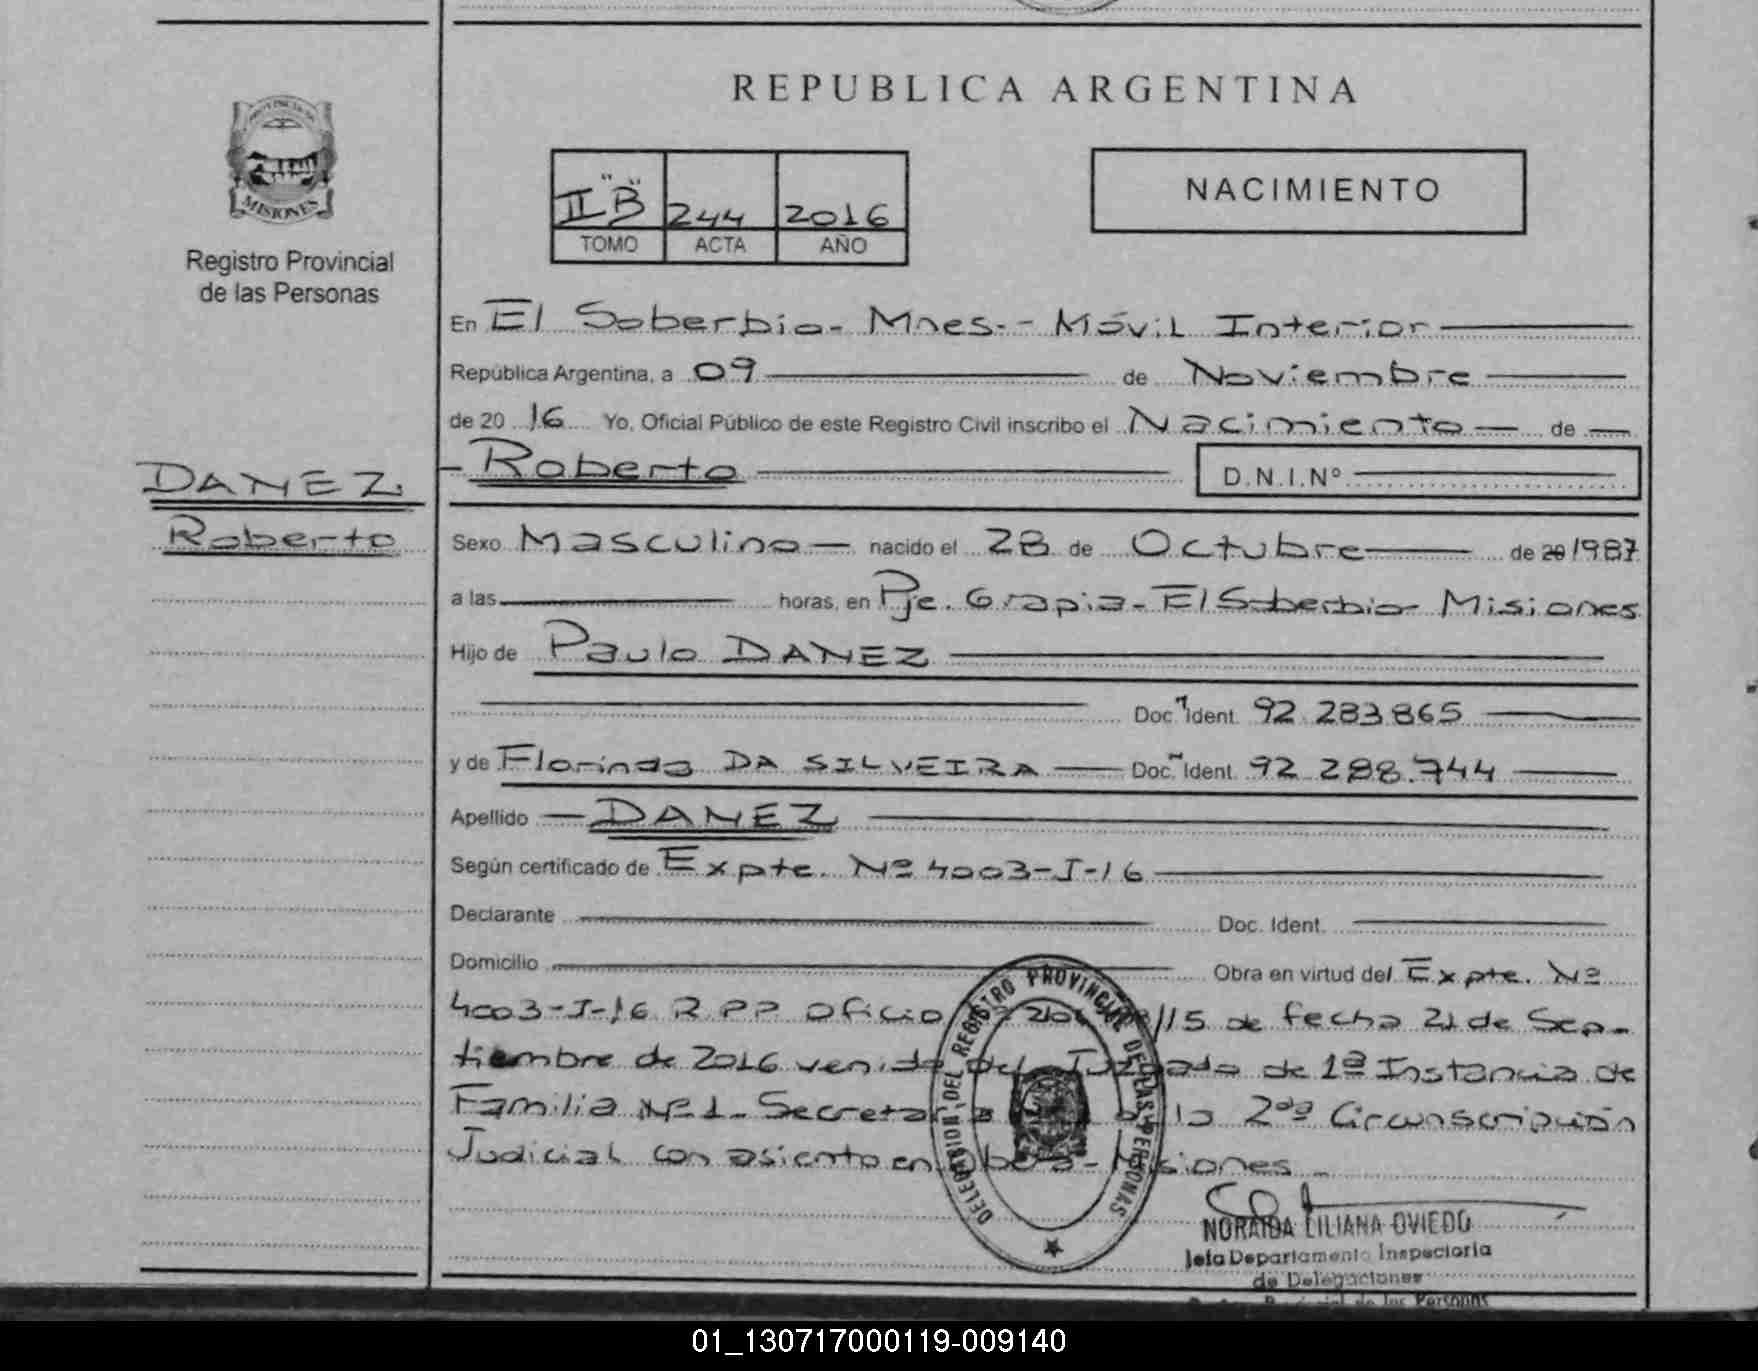 REPUBLICA ARGENTINA
PROVINCIA DE
MISIONES
Registro Provincial
de las Personas
II "B" 244 2016
TOMO ACTA AÑO
NACIMIENTO
En El Soberbio - Mnes. - Móvil Interior
República Argentina, a 09 de Noviembre
de 20 16 Yo, Oficial Público de este Registro Civil inscribo el Nacimiento de
Roberto D.N.I.Nº
DANEZ
Roberto
Sexo Masculino nacido el 28 de Octubre de 20 1987
a las horas, en Pje. Grapia - El Soberbio - Misiones
Hijo de Paulo DANEZ
Doc. Ident. 92.283.865
y de Florinda DA SILVEIRA Doc. Ident. 92.288.744
Apellido DANEZ
Según certificado de Expte. Nº 4003-I-16
Declarante Doc. Ident.
Domicilio Obra en virtud del Expte. Nº
4003-I-16 R.P.P. Oficio /15 de fecha 21 de Sep-
tiembre de 2016 venido del Juzgado de 1ª Instancia de
Familia Nº 1 - Secretaría de la 2da Circunscripción
Judicial con asiento en Oberá - Misiones
DELEGACION DEL REGISTRO PROVINCIAL DE LAS PERSONAS
NORAIDA LILIANA OVIEDO
Jefa Departamento Inspectoria
de Delegaciones
de las Personas
01_130717000119-009140